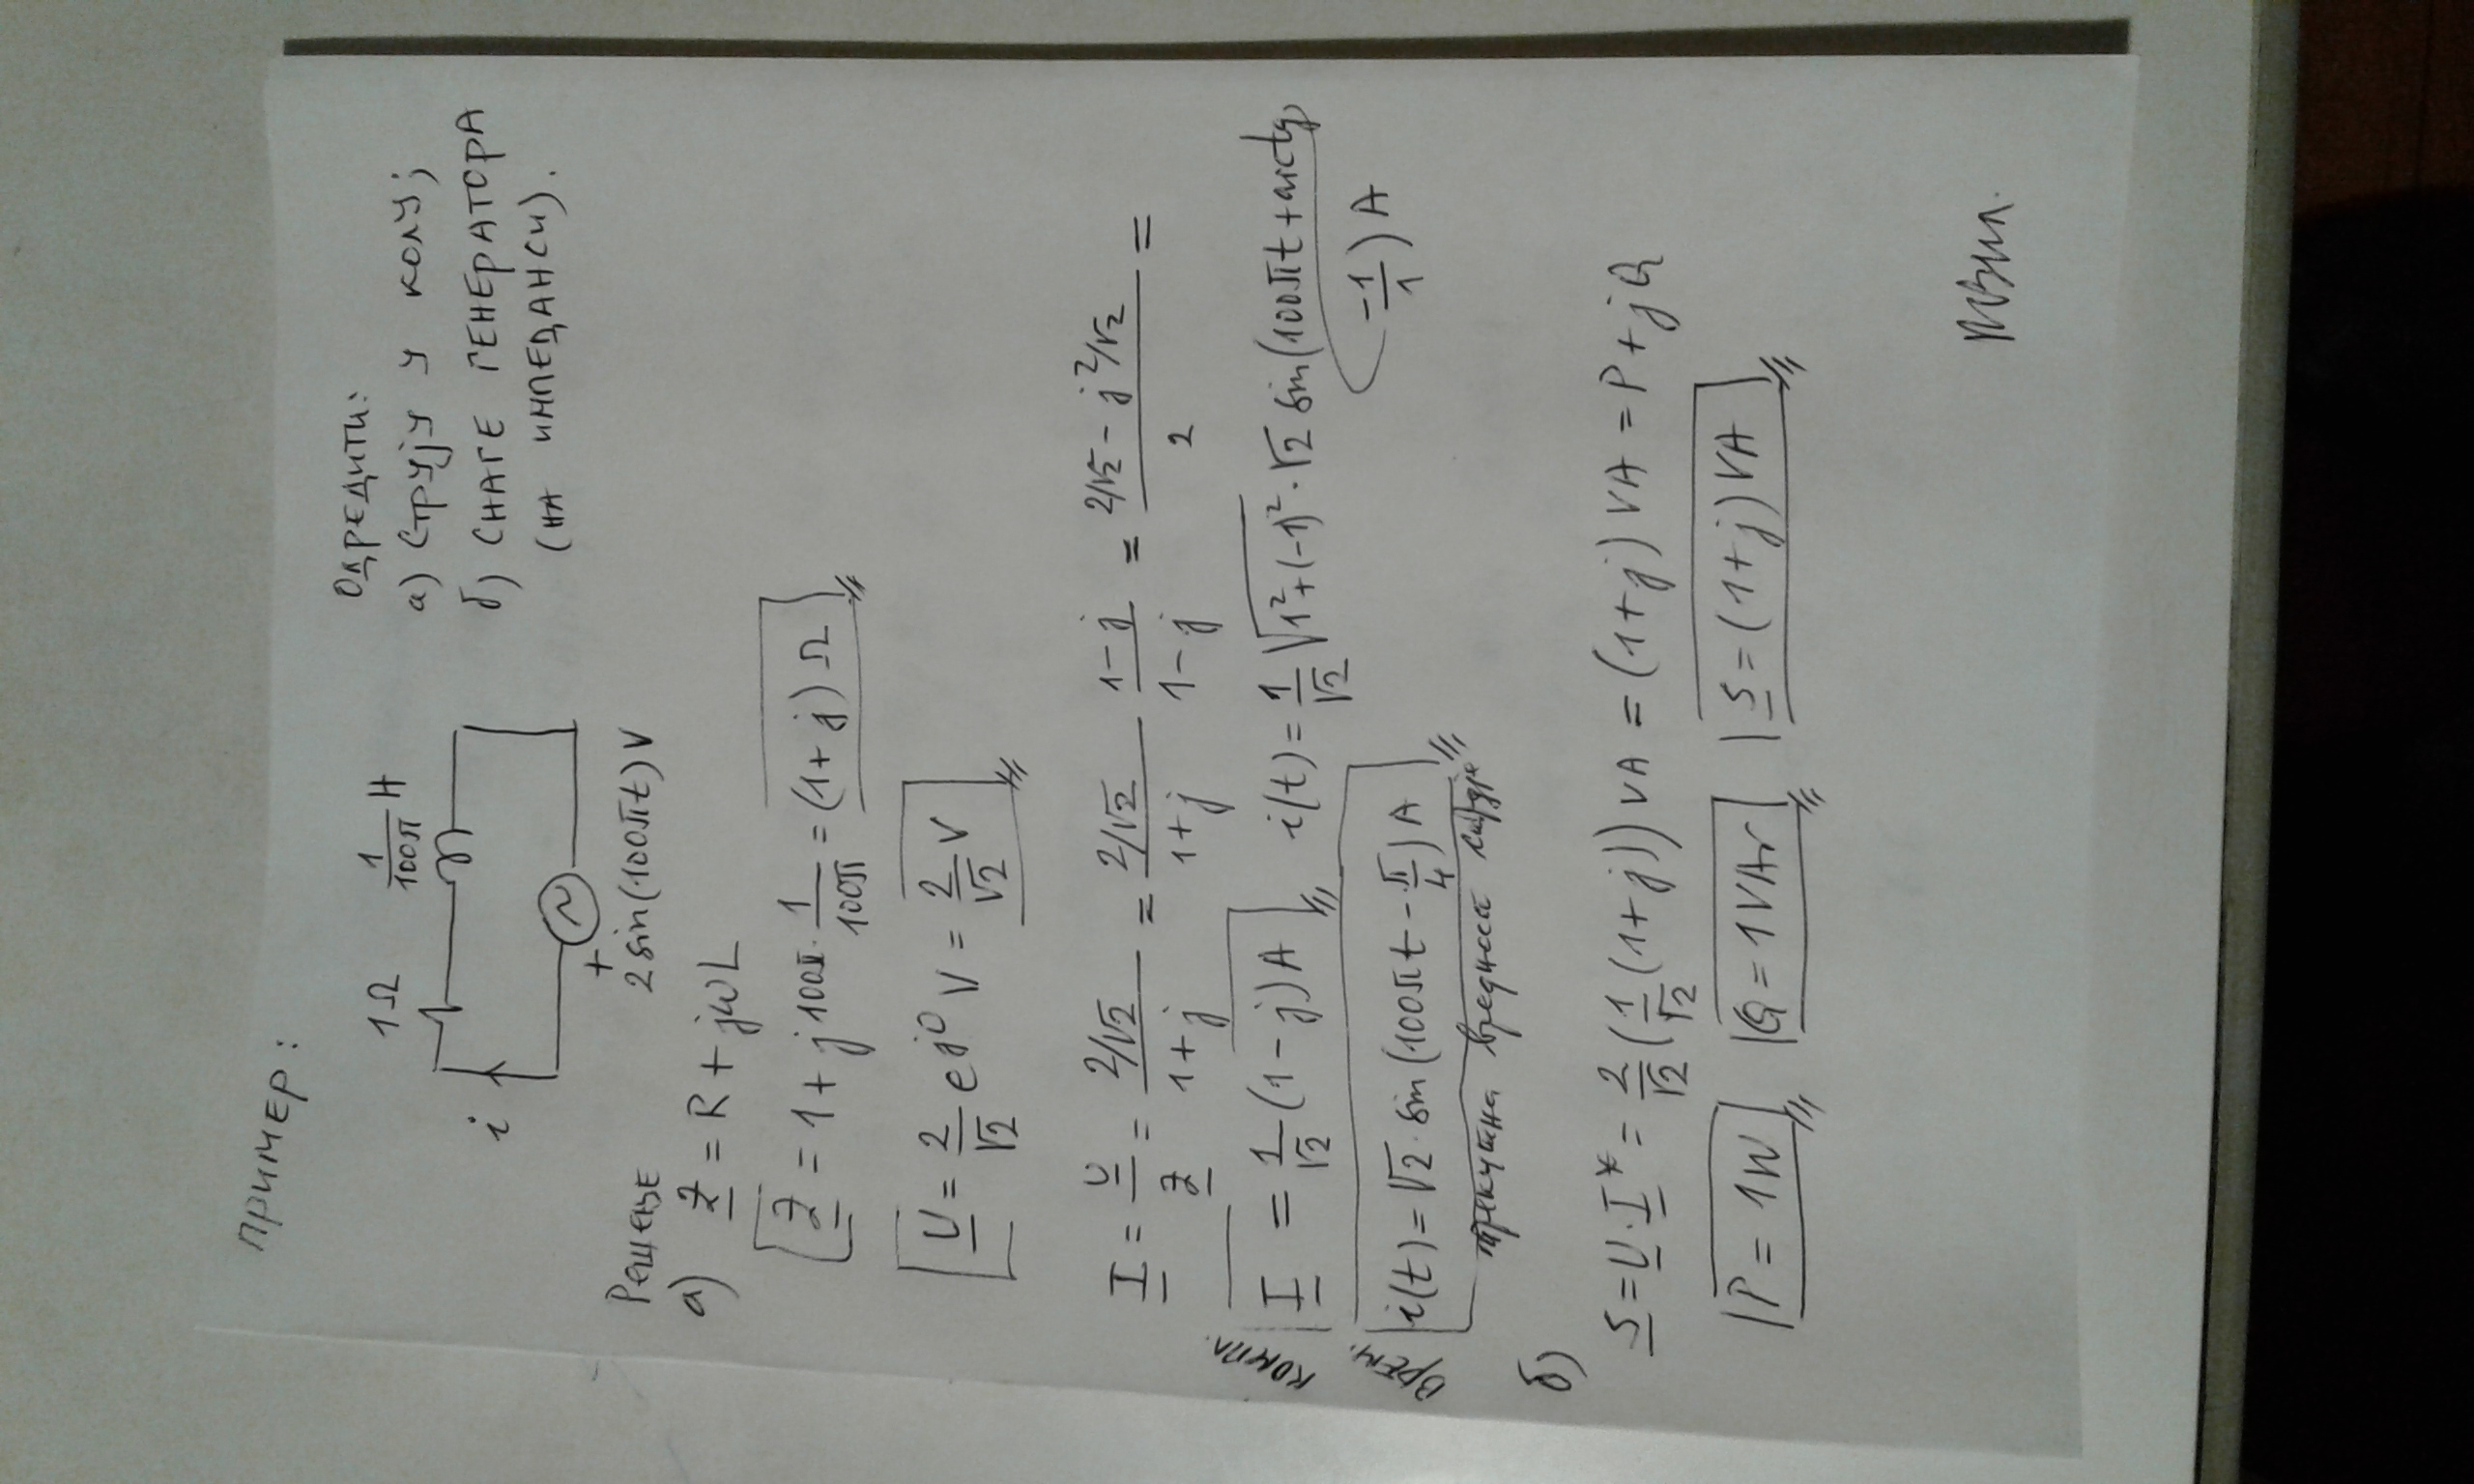 ПРИМЕР:
1Ω
1/100π H
i
+
2 sin(100πt) V
ОДРЕДИТИ:
а) СТРУЈУ У КОЛУ;
б) СНАГЕ ГЕНЕРАТОРА
(НА ИМПЕДАНСИ).
РЕШЕЊЕ
а) Z = R + jωL
Z = 1 + j100π · 1/100π = (1 + j) Ω
U = 2/√2 e^j0 V = 2/√2 V
I = U/Z = (2/√2)/(1+j) = (2/√2)/(1+j) (1-j)/(1-j) = (2/√2 - j2/√2)/2 =
КОМПЛ. I = 1/√2 (1 - j) A i(t) = 1/√2 √(1²+(-1)²) · √2 sin(100πt + arctg
-1/1) A
ВРЕМ. i(t) = √2 · sin(100πt - π/4) A
тренутна вредност струје
б) S = U · I* = 2/√2 (1/√2 (1+j)) VA = (1+j) VA = P + jQ
P = 1W Q = 1VAr S = (1+j) VA